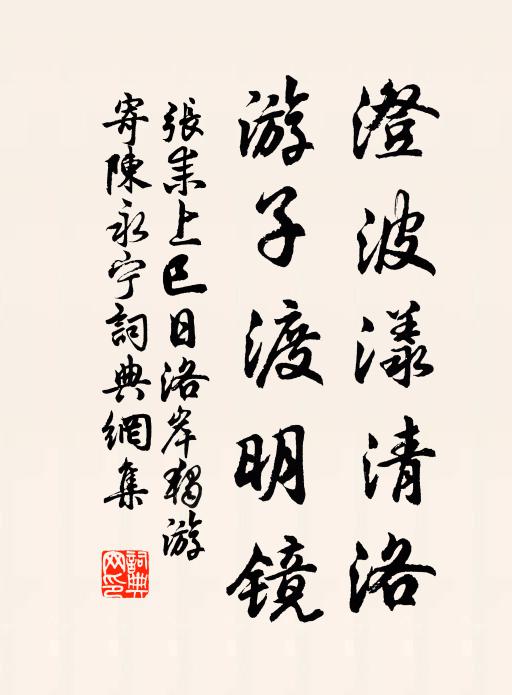 澄波漾清洛
游子渡明镜
張耒上巳日洛岸獨游
寄陳永宁詞典網集
詞典网印